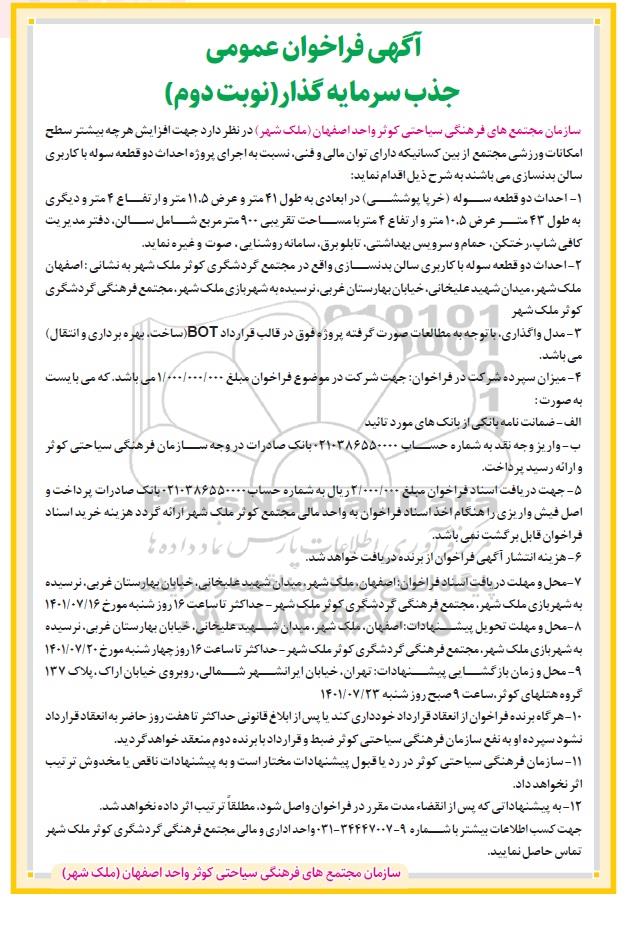 آگهی فراخوان عمومی
جذب سرمایه گذار(نوبت دوم)
سازمان مجتمع های فرهنگی سیاحتی کوثر واحد اصفهان (ملک شهر) در نظر دارد جهت افزایش هر چه بیشتر سطح
امکانات ورزشی مجتمع از بین کسانیکه دارای توان مالی و فنی، نسبت به اجرای پروژه احداث دو قطعه سوله با کاربری
سالن بدنسازی می باشند به شرح ذیل اقدام نماید:
۱- احداث دو قطعه سـوله (خرپا پوششـی) در ابعادی به طول ۴۱ متر و عرض ۱۱،۵ متر و ارتفـاع ۴ متر و دیگری
به طول ۴۳ متـر عرض ۱۰،۵ متر و ارتفاع ۴ متر با مسـاحت تقریبی ۹۰۰ متر مربع شـامل سـالن، دفتر مدیریت
کافی شاپ،رختکن، حمام و سرویس بهداشتی، تابلو برق، سامانه روشنایی ، صوت و غیره نماید.
۲- احداث دو قطعه سوله با کاربری سالن بدنسـازی واقع در مجتمع گردشگری کوثر ملک شهر به نشانی : اصفهان
ملک شهر، میدان شهید علیخانی، خیابان بهارستان غربی، نرسیده به شهربازی ملک شهر، مجتمع فرهنگی گردشگری
کوثر ملک شهر
۳- مدل واگذاری، با توجه به مطالعات صورت گرفته پروژه فوق در قالب قرارداد BOT(ساخت، بهره برداری و انتقال)
می باشد.
۴- میزان سپرده شرکت در فراخوان: جهت شرکت در موضوع فراخوان مبلغ ۱/۰۰۰/۰۰۰/۰۰۰ می باشد. که می بایست
به صورت :
الف- ضمانت نامه بانکی از بانک های مورد تائید
ب- واریز وجه نقد به شماره حسـاب ۰۲۱۰۳۸۶۵۵۰۰۰۰ بانک صادرات در وجه سـازمان فرهنگی سیاحتی کوثر
و ارائه رسید پرداخت.
۵- جهت دریافت اسناد فراخوان مبلغ ۲/۰۰۰/۰۰۰ ریال به شماره حساب ۰۲۱۰۳۸۶۵۵۰۰۰۰ بانک صادرات پرداخت و
اصل فیش واریزی را هنگام اخذ اسناد فراخوان به واحد مالی مجتمع کوثر ملک شهر ارائه گردد هزینه خرید اسناد
فراخوان قابل برگشت نمی باشد.
۶- هزینه انتشار آگهی فراخوان از برنده دریافت خواهد شد.
۷- محل و مهلت دریافت اسناد فراخوان: اصفهان، ملک شهر، میدان شهید علیخانی، خیابان بهارستان غربی، نرسیده
به شهربازی ملک شهر، مجتمع فرهنگی گردشگری کوثر ملک شهر - حداکثر تا ساعت ۱۶ روز شنبه مورخ ۱۴۰۱/۰۷/۱۶
۸- محل و مهلت تحویل پیشـنهادات: اصفهان، ملک شهر، میدان شـهید علیخانی، خیابان بهارستان غربی، نرسیده
به شهربازی ملک شهر، مجتمع فرهنگی گردشگری کوثر ملک شهر - حداکثر تا ساعت ۱۶ روز چهار شنبه مورخ ۱۴۰۱/۰۷/۲۰
۹- محل و زمان بازگشـایی پیشـنهادات: تهران، خیابان ایرانشـهر شـمالی، روبروی خیابان اراک ، پلاک ۱۳۷
گروه هتلهای کوثر،ساعت ۹ صبح روز شنبه ۱۴۰۱/۰۷/۲۳
۱۰- هر گاه برنده فراخوان از انعقاد قرارداد خودداری کند یا پس از ابلاغ قانونی حداکثر تا هفت روز حاضر به انعقاد قرارداد
نشود سپرده او به نفع سازمان فرهنگی سیاحتی کوثر ضبط و قرارداد با برنده دوم منعقد خواهد گردید.
۱۱- سازمان فرهنگی سیاحتی کوثر در رد یا قبول پیشنهادات مختار است و به پیشنهادات ناقص یا مخدوش ترتیب
اثر نخواهد داد.
۱۲- به پیشنهاداتی که پس از انقضاء مدت مقرر در فراخوان واصل شود، مطلقاً ترتیب اثر داده نخواهد شد.
جهت کسب اطلاعات بیشتر با شـماره ۹-۰۳۱-۳۴۴۴۷۰۰۷ واحد اداری و مالی مجتمع فرهنگی گردشگری کوثر ملک شهر
تماس حاصل نمایید.
سازمان مجتمع های فرهنگی سیاحتی کوثر واحد اصفهان (ملک شهر)